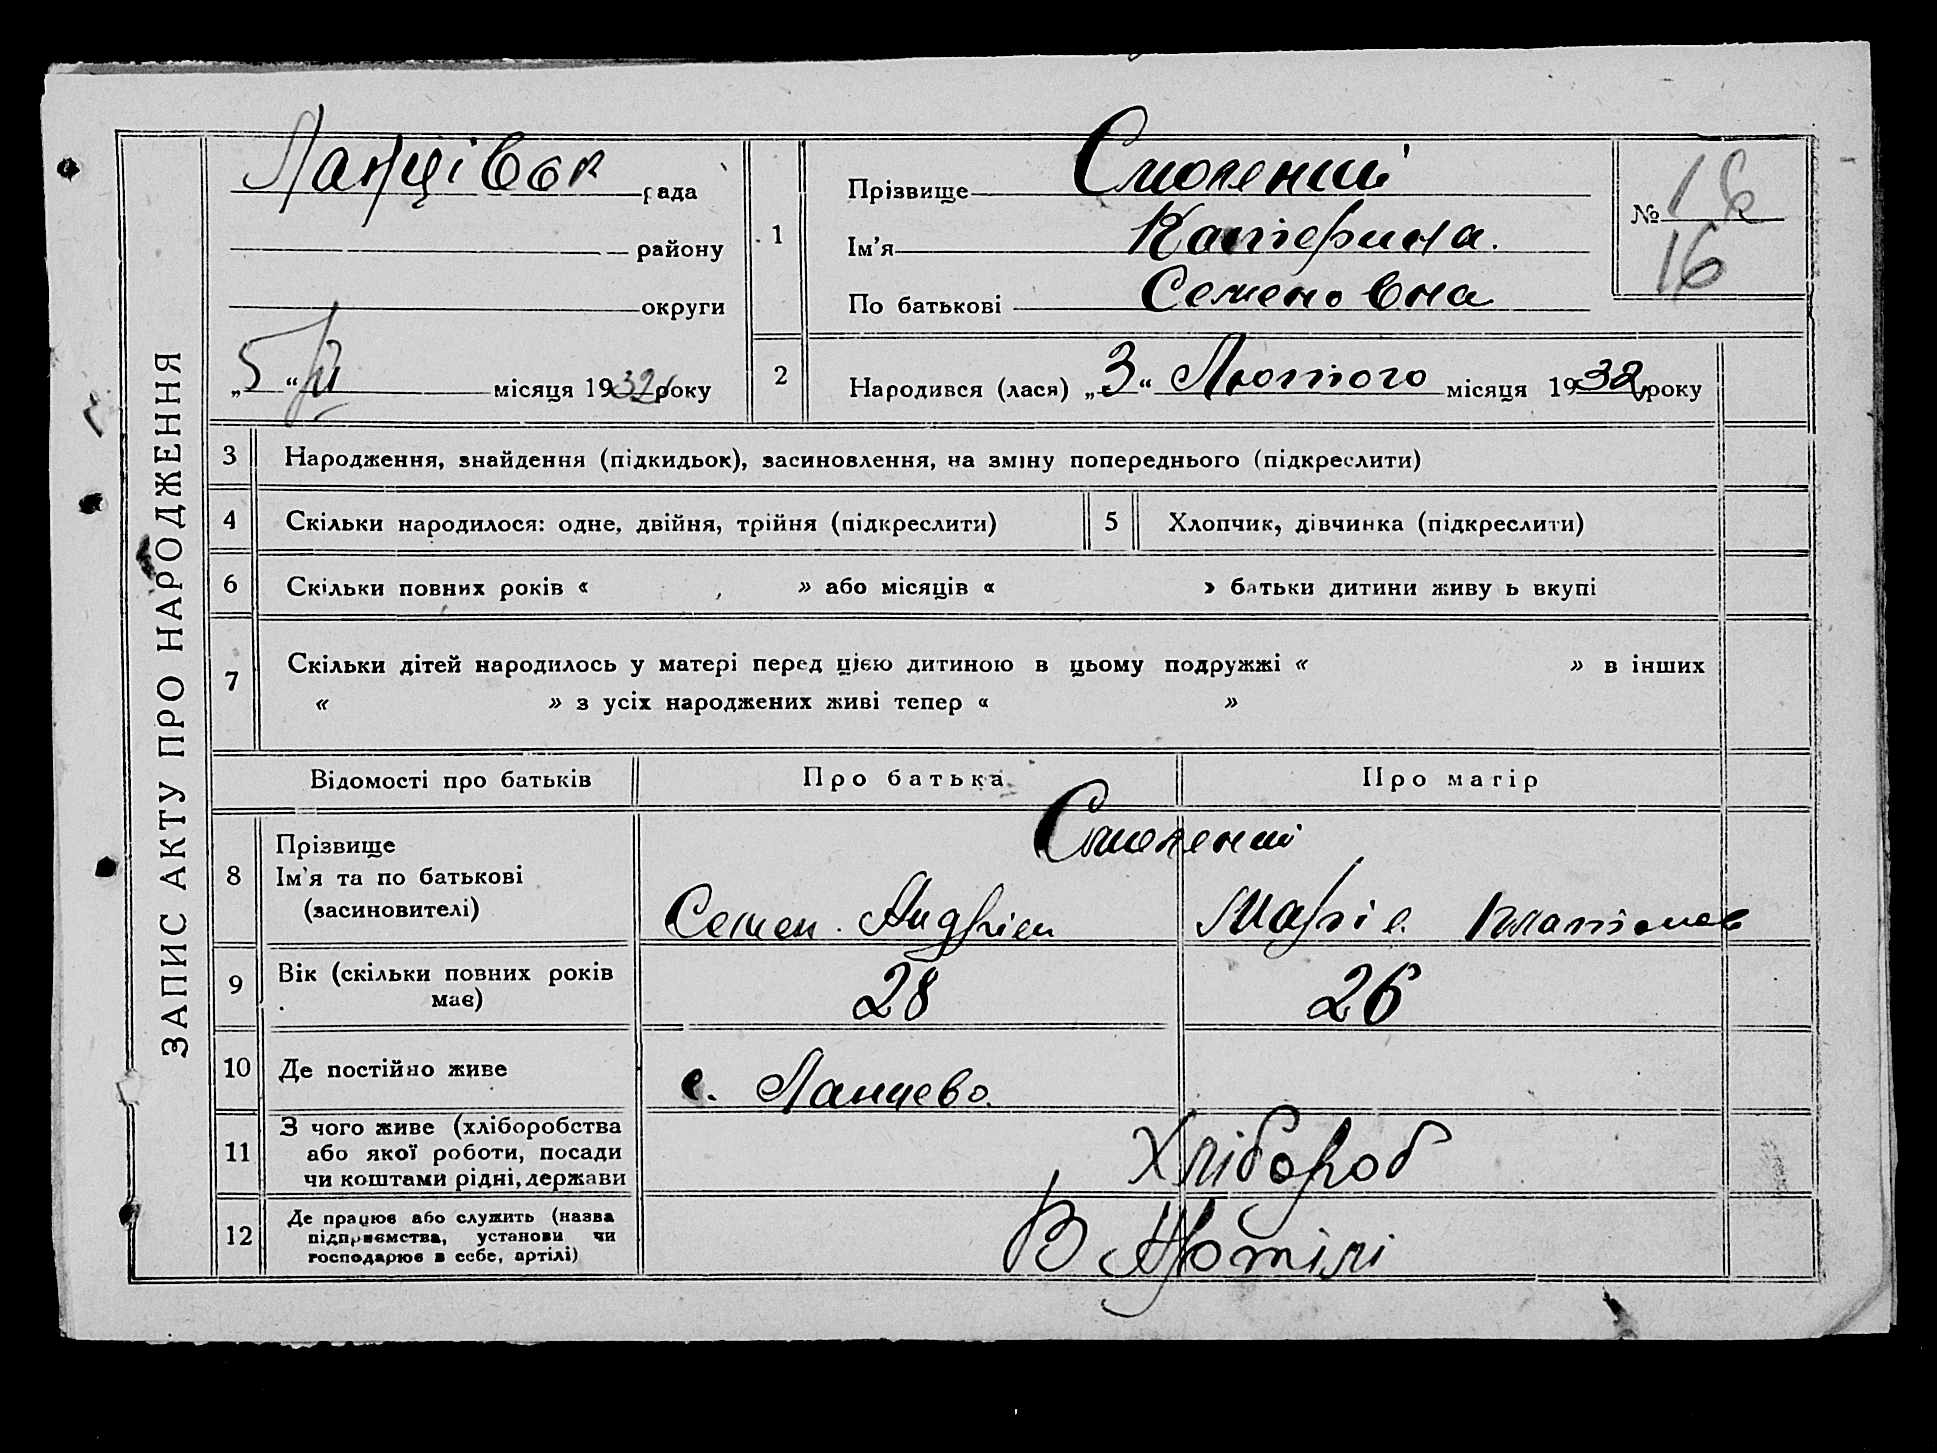 ЗАПИС АКТУ ПРО НАРОДЖЕННЯ
рада
району
округи
„5“ II місяця 1932 року
1
Прізвище
Ім'я Катерина.
По батькові Семеновна
№ 16
16
2
Народився (лася) „3“ Лютого місяця 1932 року
3 Народження, знайдення (підкидьок), засиновлення, на зміну попереднього (підкреслити)
4 Скільки народилося: одне, двійня, трійня (підкреслити)
5 Хлопчик, дівчинка (підкреслити)
6 Скільки повних років « » або місяців « » батьки дитини живу ь вкупі
7 Скільки дітей народилось у матері перед цією дитиною в цьому подружжі « » в інших
« » з усіх народжених живі тепер « »
Відомості про батьків
Про батька
Про матір
8 Прізвище
Ім'я та по батькові
(засиновителі)
Семен. Андріен
Марія
9 Вік (скільки повних років
має)
28
26
10 Де постійно живе
с. Ланцево.
11 З чого живе (хліборобства
або якої роботи, посади
чи коштами рідні, держави
Хлібороб
12 Де працює або служить (назва
підприємства, установи чи
господарює в себе, артілі)
В Артілі